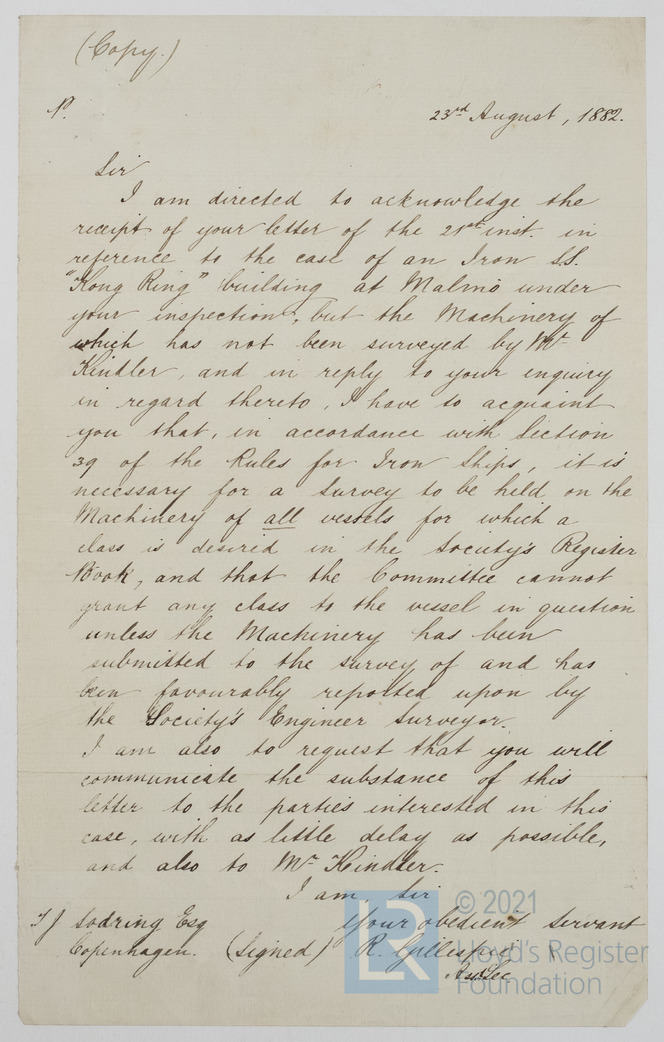 (Copy.)
23rd August, 1882.
Sir
I am directed to acknowledge the
receipt of your letter of the 21st inst. in
reference to the case of an Iron S.S.
"Kong Ring" building at Malmö under
your inspection, but the Machinery of
which has not been surveyed by Mr
Kindler, and in reply to your enquiry
in regard thereto, I have to acquaint
you that, in accordance with Section
39 of the Rules for Iron Ships, it is
necessary for a Survey to be held on the
Machinery of all vessels for which a
class is desired in the Society's Register
Book, and that the Committee cannot
grant any class to the vessel in question
unless the Machinery has been
submitted to the survey of and has
been favourably reported upon by
the Society's Engineer Surveyor.
I am also to request that you will
communicate the substance of this
letter to the parties interested in this
case, with as little delay as possible,
and also to Mr Kindler.
I am, Sir
Your obedient Servant
Sodring Esq
Copenhagen. (Signed) R. Gillespie
© 2021
Lloyd's Register
Foundation
LR